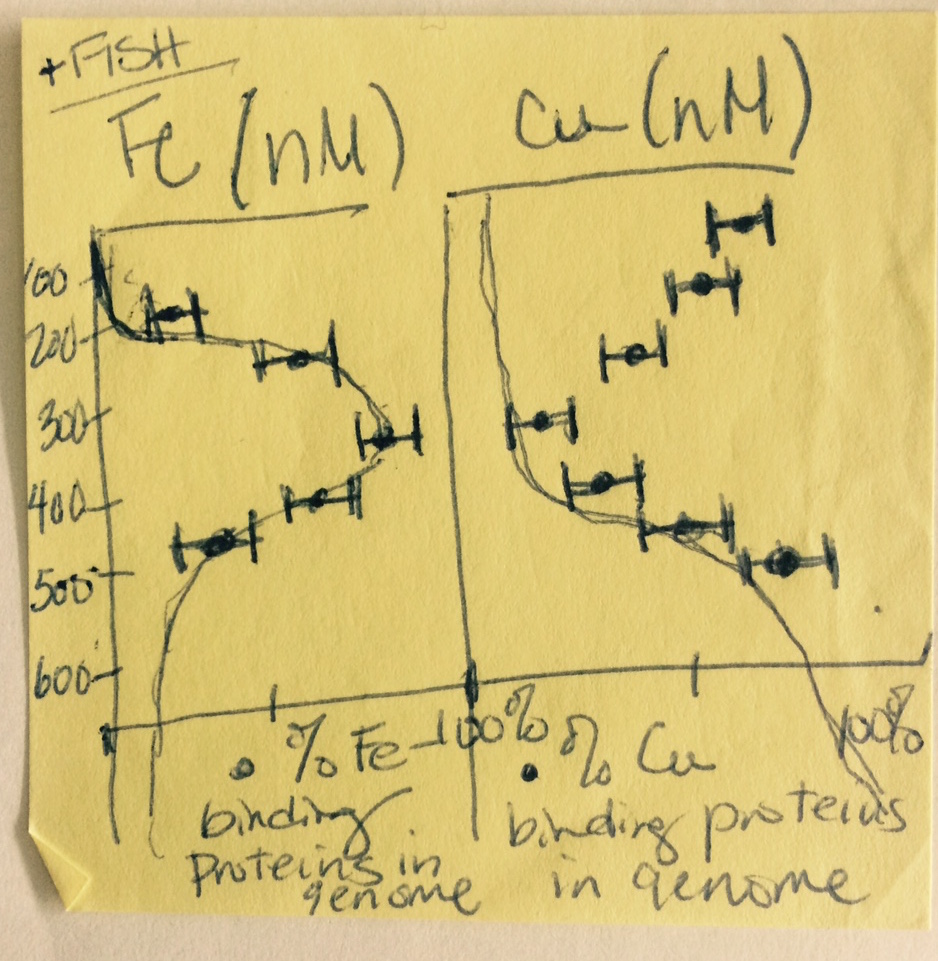 +FISH
Fe (nM)
Cu (nM)
100
200
300
400
500
600
100%
100%
• % Fe
binding
proteins in
genome
• % Cu
binding proteins
in genome